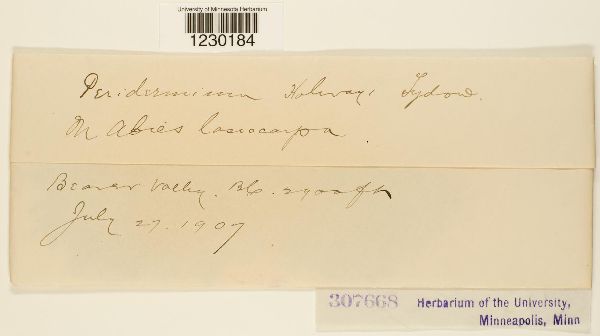 University of Minnesota Herbarium
1230184
Peridermium Holwayi Sydow.
On Abies lasiocarpa
Beaver Valley. B.C. 2900 ft
July 27. 1907
307668
Herbarium of the University,
Minneapolis, Minn